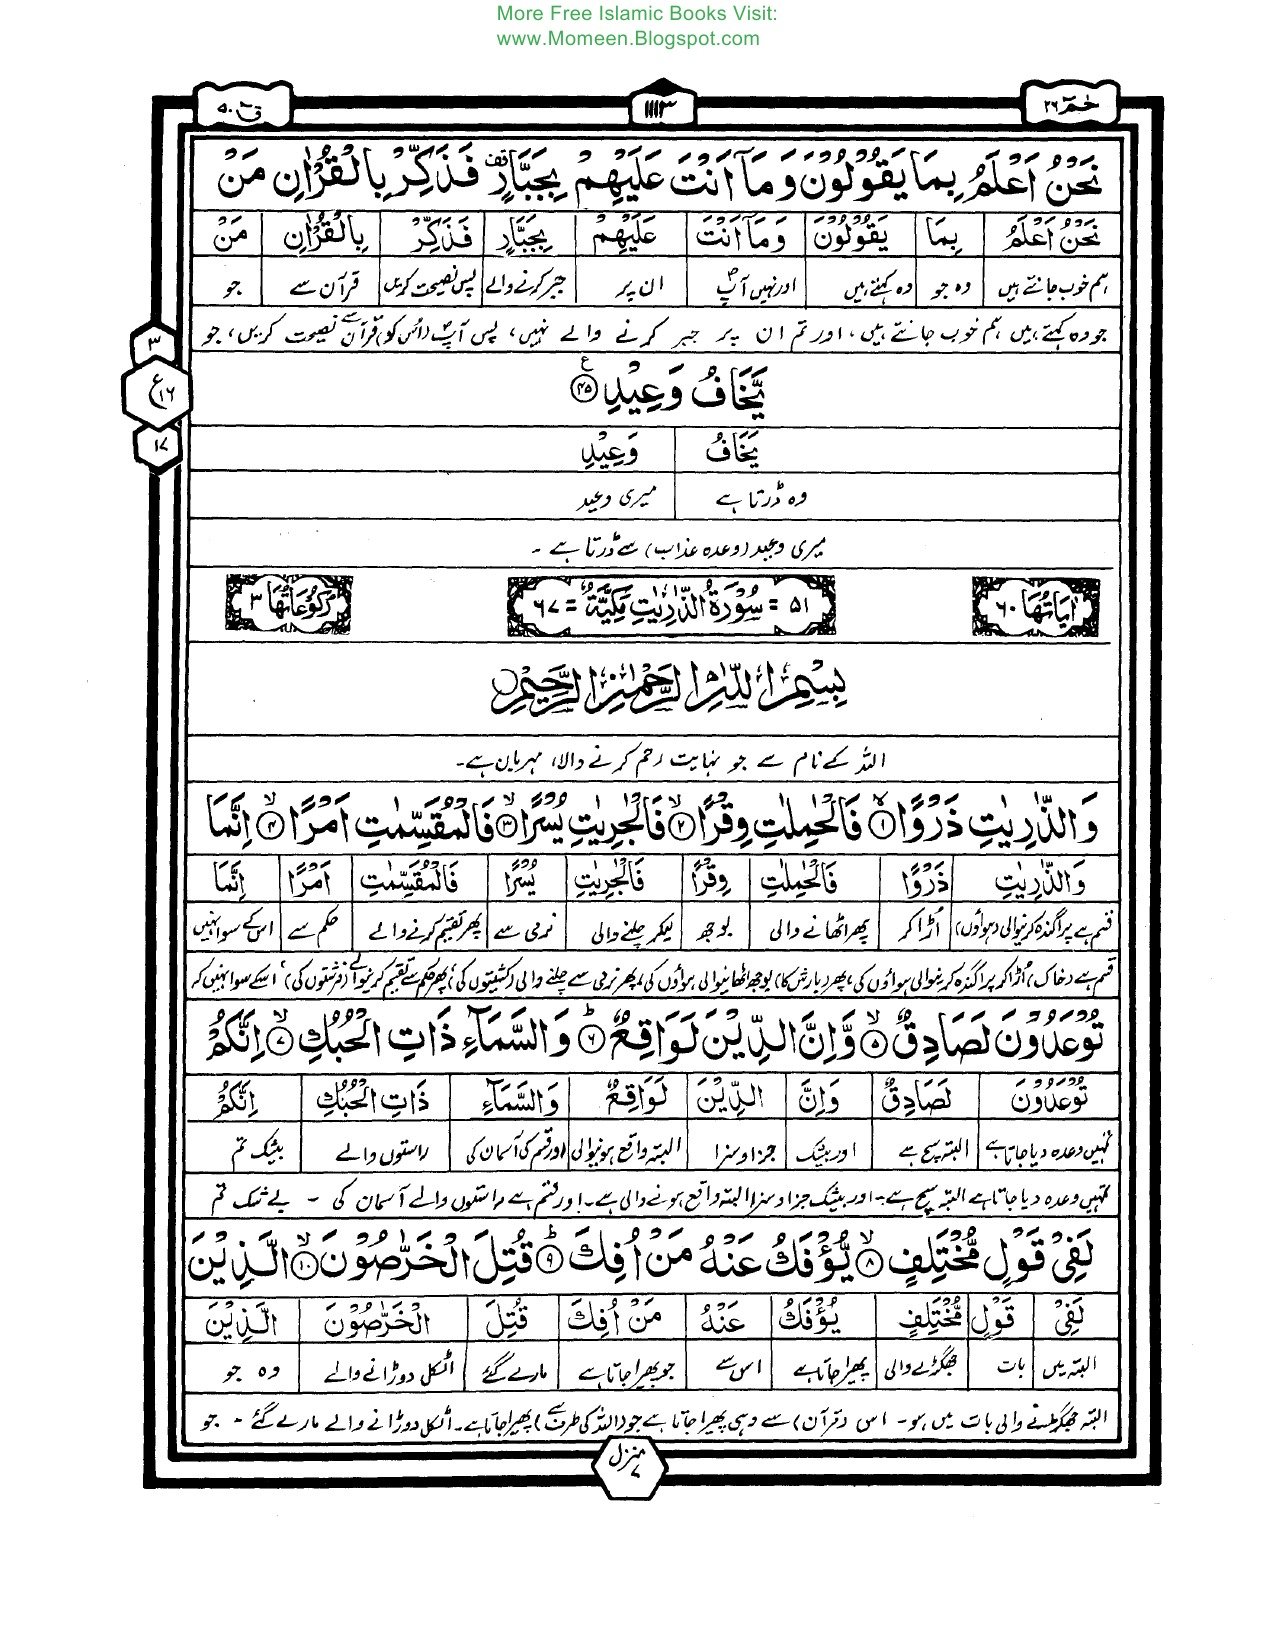 More Free Islamic Books Visit:
www.Momeen.Blogspot.com
حٰمٓ ۲۶
۱۱۱۳
قٓ ۵۰
نَحْنُ اَعْلَمُ بِمَا يَقُوْلُوْنَ وَمَآ اَنْتَ عَلَيْهِمْ بِجَبَّارٍ قف فَذَكِّرْ بِالْقُرْاٰنِ مَنْ
نَحْنُ اَعْلَمُ بِمَا يَقُوْلُوْنَ وَمَآ اَنْتَ عَلَيْهِمْ بِجَبَّارٍ فَذَكِّرْ بِالْقُرْاٰنِ مَنْ
ہم خوب جانتے ہیں وہ جو وہ کہتے ہیں اور نہیں آپؐ ان پر جبر کرنے والے پس نصیحت کریں قرآن سے جو
جو وہ کہتے ہیں ہم خوب جانتے ہیں، اور تم ان پر جبر کرنے والے نہیں، پس آپؐ (اس کو) قرآن سے نصیحت کریں، جو
۳
ع ۱۶
۱۷
يَّخَافُ وَعِيْدِ ﴿۴۵﴾ ع
يَّخَافُ وَعِيْدِ
وہ ڈرتا ہے میری وعید
میری وعید (وعدہ عذاب) سے ڈرتا ہے ۔
اٰيَاتُهَا ۶۰
۵۱ = سُوْرَةُ الذّٰرِيٰتِ مَكِّيَّةٌ = ۶۷
رُكُوْعَاتُهَا ۳
بِسْمِ اللّٰهِ الرَّحْمٰنِ الرَّحِيْمِ
اللہ کے نام سے جو نہایت رحم کرنے والا، مہربان ہے۔
وَالذّٰرِيٰتِ ذَرْوًا ﴿۱﴾ فَالْحٰمِلٰتِ وِقْرًا ﴿۲﴾ فَالْجٰرِيٰتِ يُسْرًا ﴿۳﴾ فَالْمُقَسِّمٰتِ اَمْرًا ﴿۴﴾ اِنَّمَا
وَالذّٰرِيٰتِ ذَرْوًا فَالْحٰمِلٰتِ وِقْرًا فَالْجٰرِيٰتِ يُسْرًا فَالْمُقَسِّمٰتِ اَمْرًا اِنَّمَا
قسم ہے پراگندہ کرنیوالی (ہواؤں) اُڑا کر پھر اٹھانے والی بوجھ لیکر چلنے والی نرمی سے پھر تقسیم کرنے والے حکم سے اس کے سوا نہیں
قسم ہے (خاک) اُڑا کر پراگندہ کرنیوالی ہواؤں کی، پھر (بارش کا) بوجھ اٹھانیوالی ہواؤں کی، پھر نرمی سے چلنے والی (کشتیوں کی)، پھر حکم سے تقسیم کرنیوالے (فرشتوں کی)، اسکے سوا نہیں کہ
تُوْعَدُوْنَ لَصَادِقٌ ﴿۵﴾ وَّاِنَّ الدِّيْنَ لَوَاقِعٌ ﴿۶﴾ وَالسَّمَآءِ ذَاتِ الْحُبُكِ ﴿۷﴾ اِنَّكُمْ
تُوْعَدُوْنَ لَصَادِقٌ وَاِنَّ الدِّيْنَ لَوَاقِعٌ وَالسَّمَآءِ ذَاتِ الْحُبُكِ اِنَّكُمْ
تمہیں وعدہ دیا جاتا ہے البتہ سچ ہے اور بیشک جزا و سزا البتہ واقع ہونیوالی اور قسم کی آسمان کی راستوں والے بیشک تم
تمہیں وعدہ دیا جاتا ہے البتہ سچ ہے۔ اور بیشک جزا و سزا البتہ واقع ہونے والی ہے۔ اور قسم ہے راستوں والے آسمان کی ۔ بے شک تم
لَفِيْ قَوْلٍ مُّخْتَلِفٍ ﴿۸﴾ يُّؤْفَكُ عَنْهُ مَنْ اُفِكَ ﴿۹﴾ قُتِلَ الْخَرّٰصُوْنَ ﴿۱۰﴾ الَّذِيْنَ
لَفِيْ قَوْلٍ مُّخْتَلِفٍ يُؤْفَكُ عَنْهُ مَنْ اُفِكَ قُتِلَ الْخَرّٰصُوْنَ الَّذِيْنَ
البتہ میں بات جھگڑے والی پھیرا جاتا ہے اس سے جو پھیرا جاتا ہے مارے گئے اٹکل دوڑانے والے وہ جو
البتہ جھگڑنے والی بات میں ہو۔ اس (قرآن) سے وہی پھیرا جاتا ہے جو (اللہ کی طرف سے) پھیرا جاتا ہے۔ اٹکل دوڑانے والے مارے گئے ۔ جو
منزل ۷